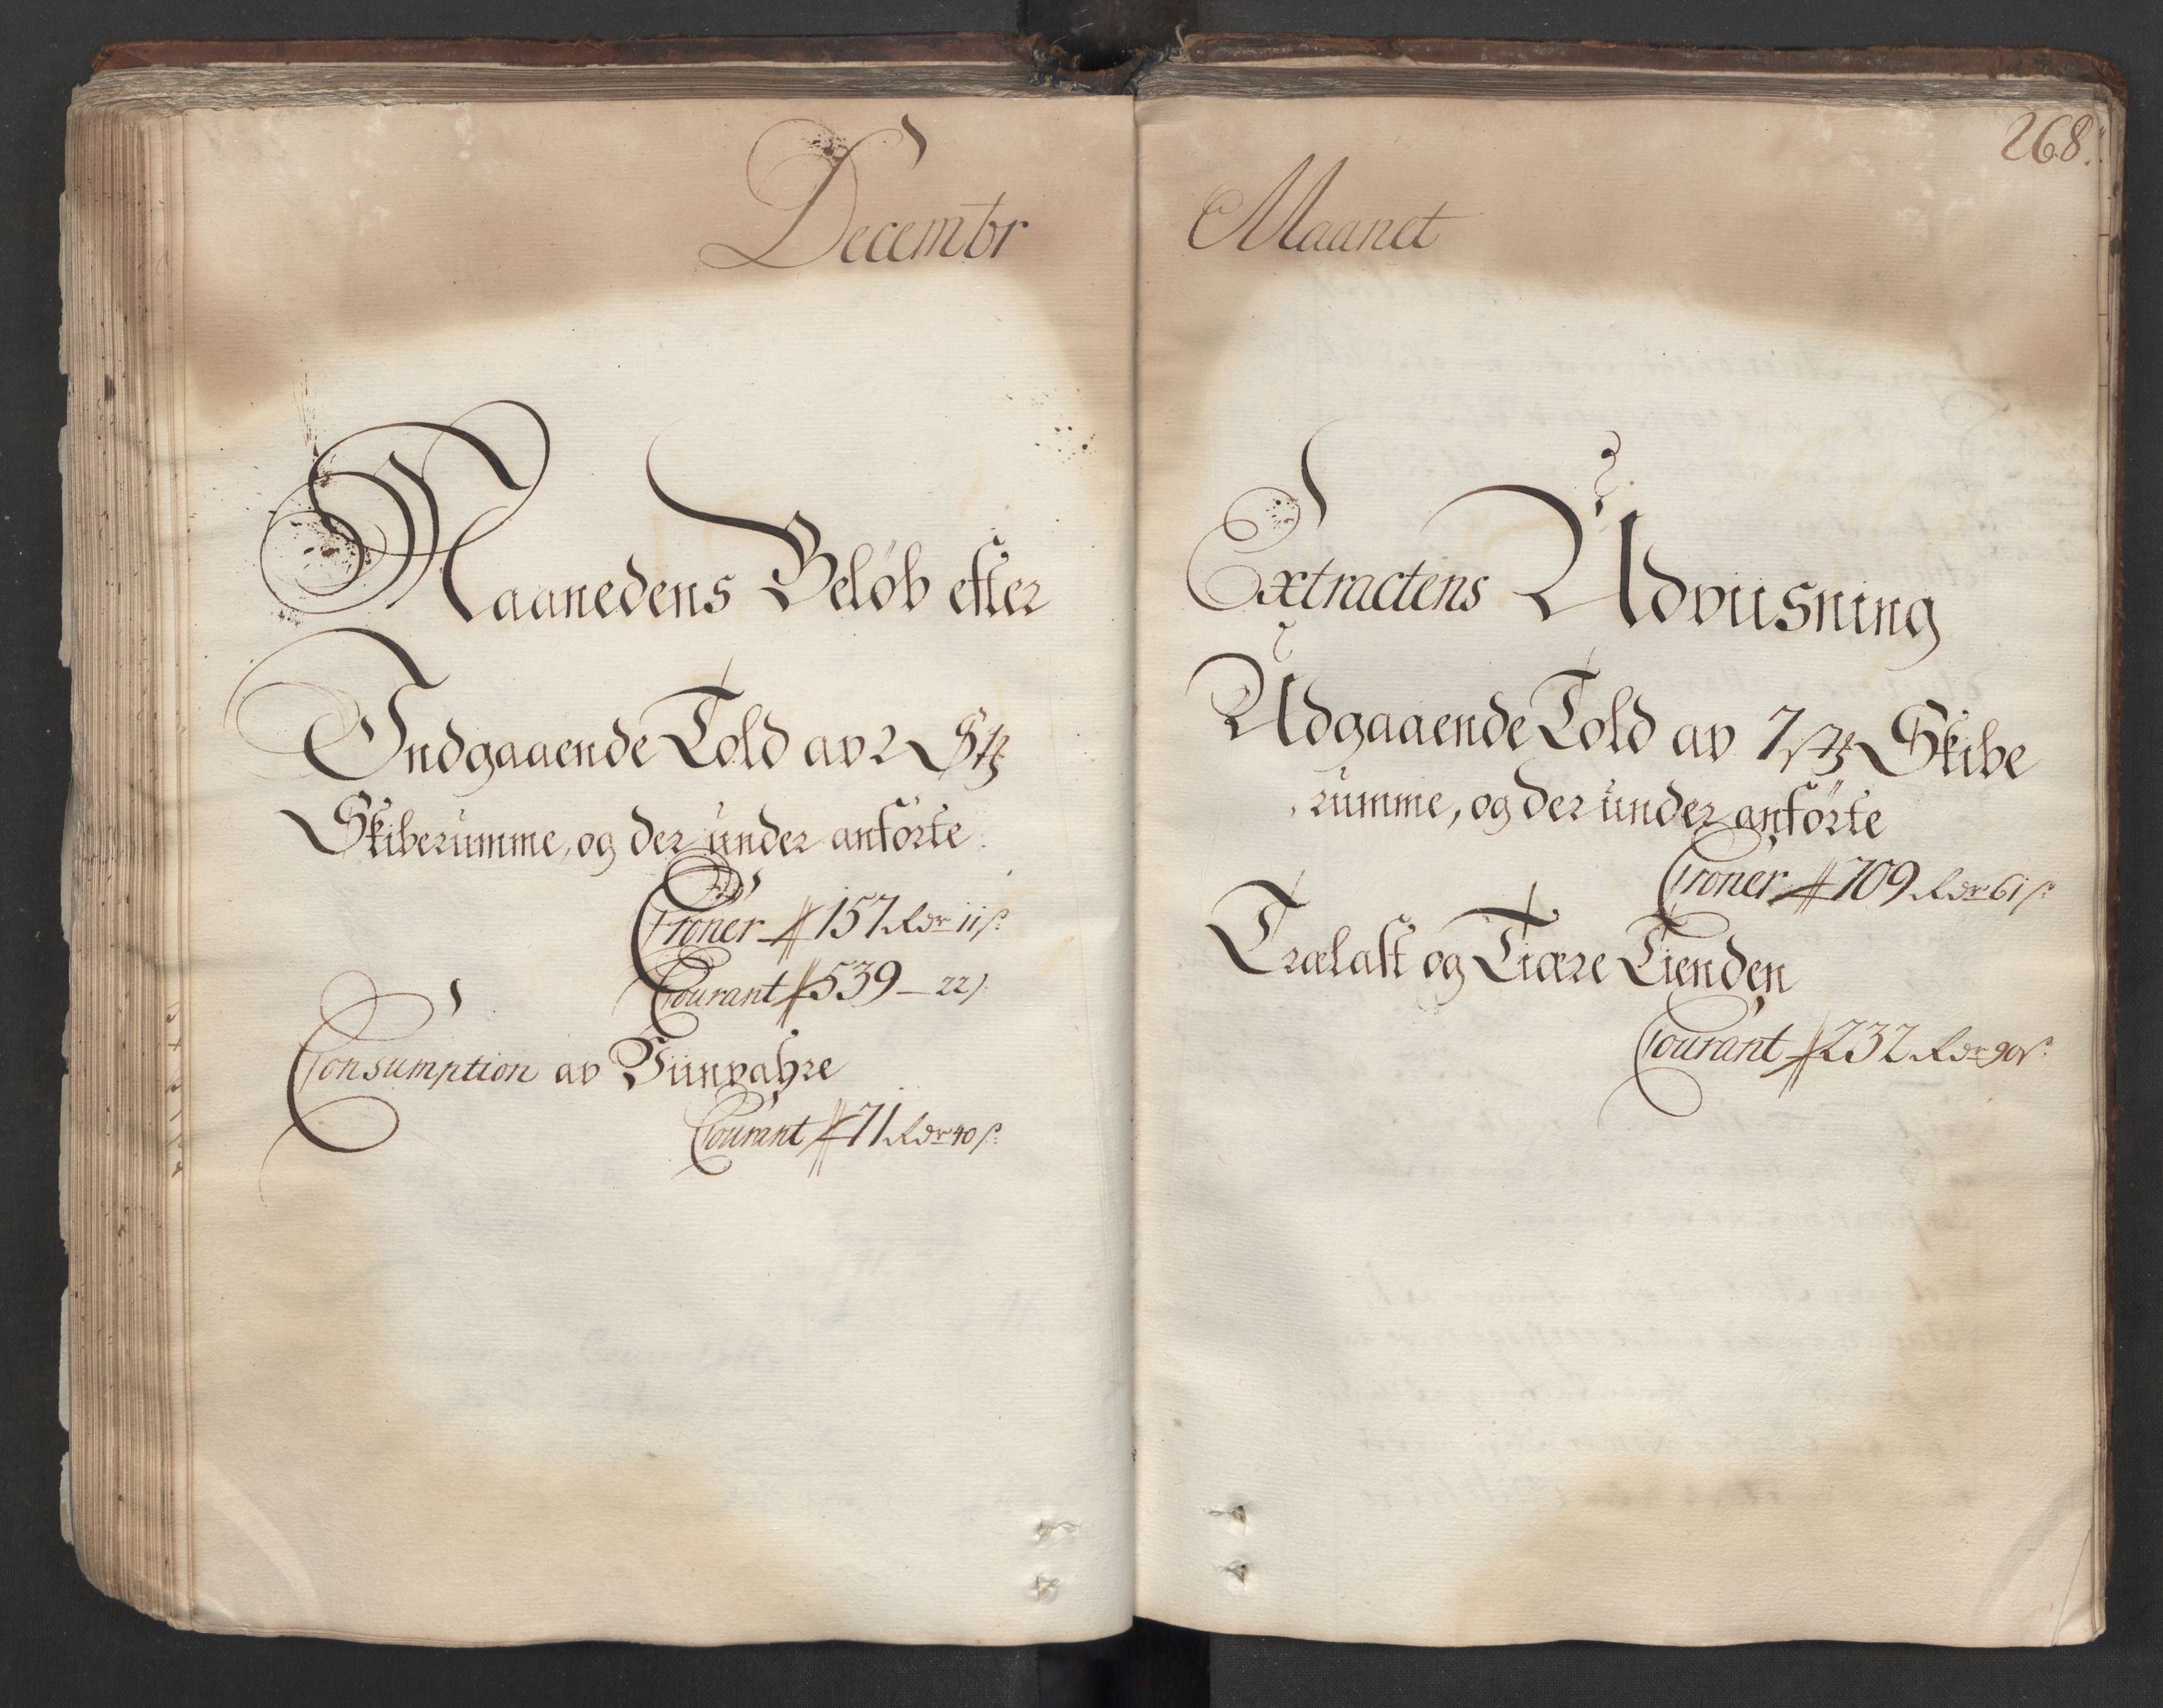 Decembr
Maanedens Beløb efter
Indgaaende Told av 2 Stk
Skiberumme, og der under anførte
Croner # 157 Rdr 11 s:
Courant # 539 - 22 s:
Consumption av Viinvahre
Courant # 71 Rdr 40 s:
268.
Maanet
Extractens Udviisning
Udgaaende Told av 7 stk Skibe
rumme, og der under anførte
Croner # 709 Rdr 61 s:
Trælast og Tiære Tienden
Courant # 232 Rdr 90 s: